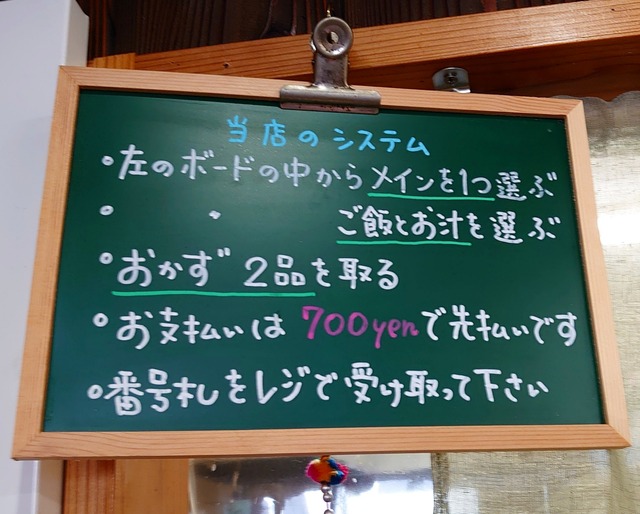 当店のシステム
・左のボードの中からメインを1つ選ぶ
・ 〃 ご飯とお汁を選ぶ
・おかず 2品を取る
・お支払いは 700yenで先払いです
・番号札をレジで受け取って下さい